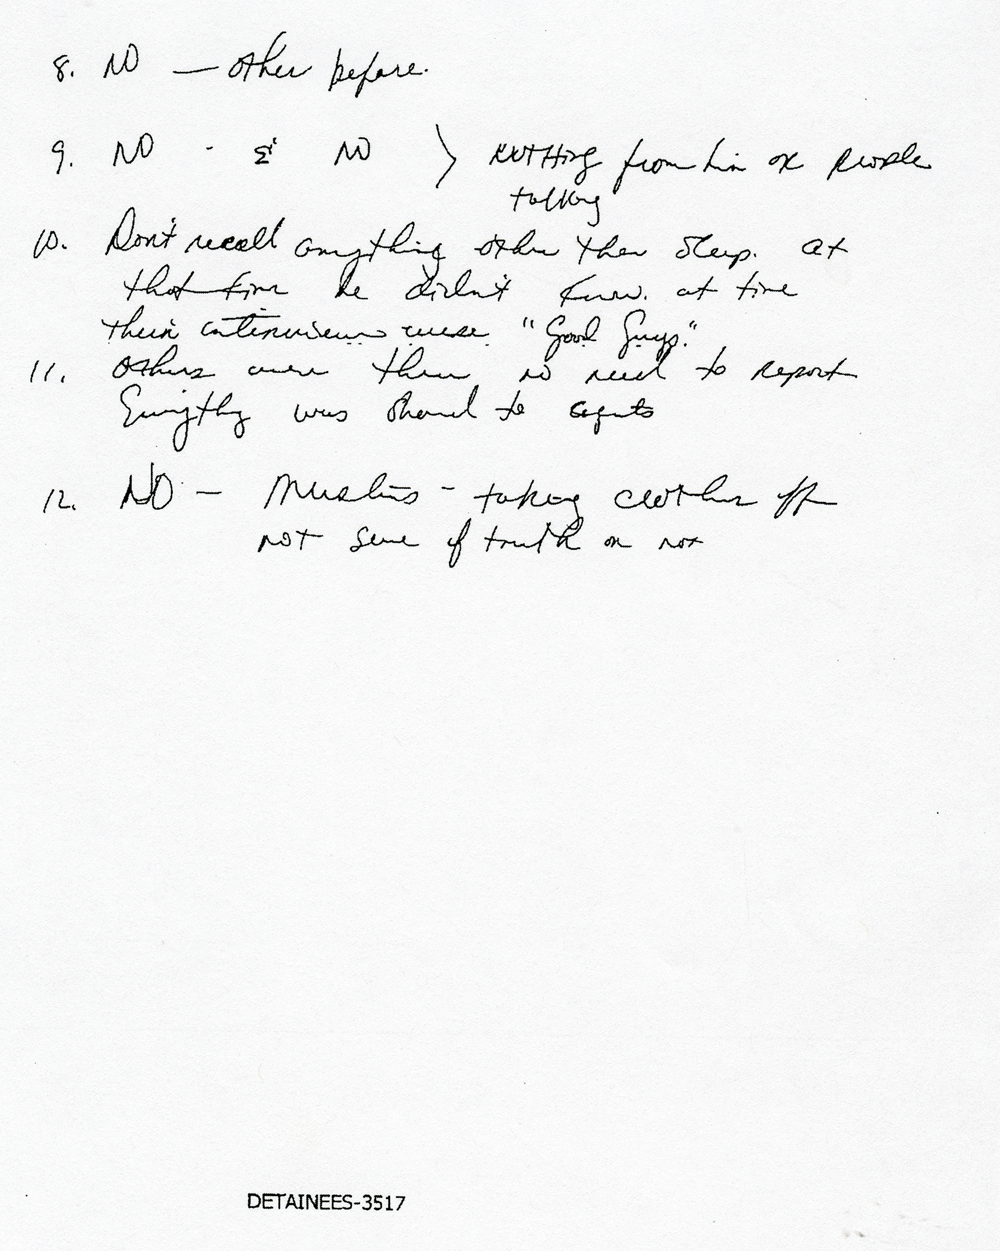 8. NO — other before.
9. NO - & NO > nothing from him or people
talking
10. Don't recall anything other then sleep. at
that time he didn't know. at time
their interviews were "Good Guys."
11. Others were there no need to report
Everything was shared to agents
12. NO - Muslims - taking clothes off
not sure if truth or not
DETAINEES-3517